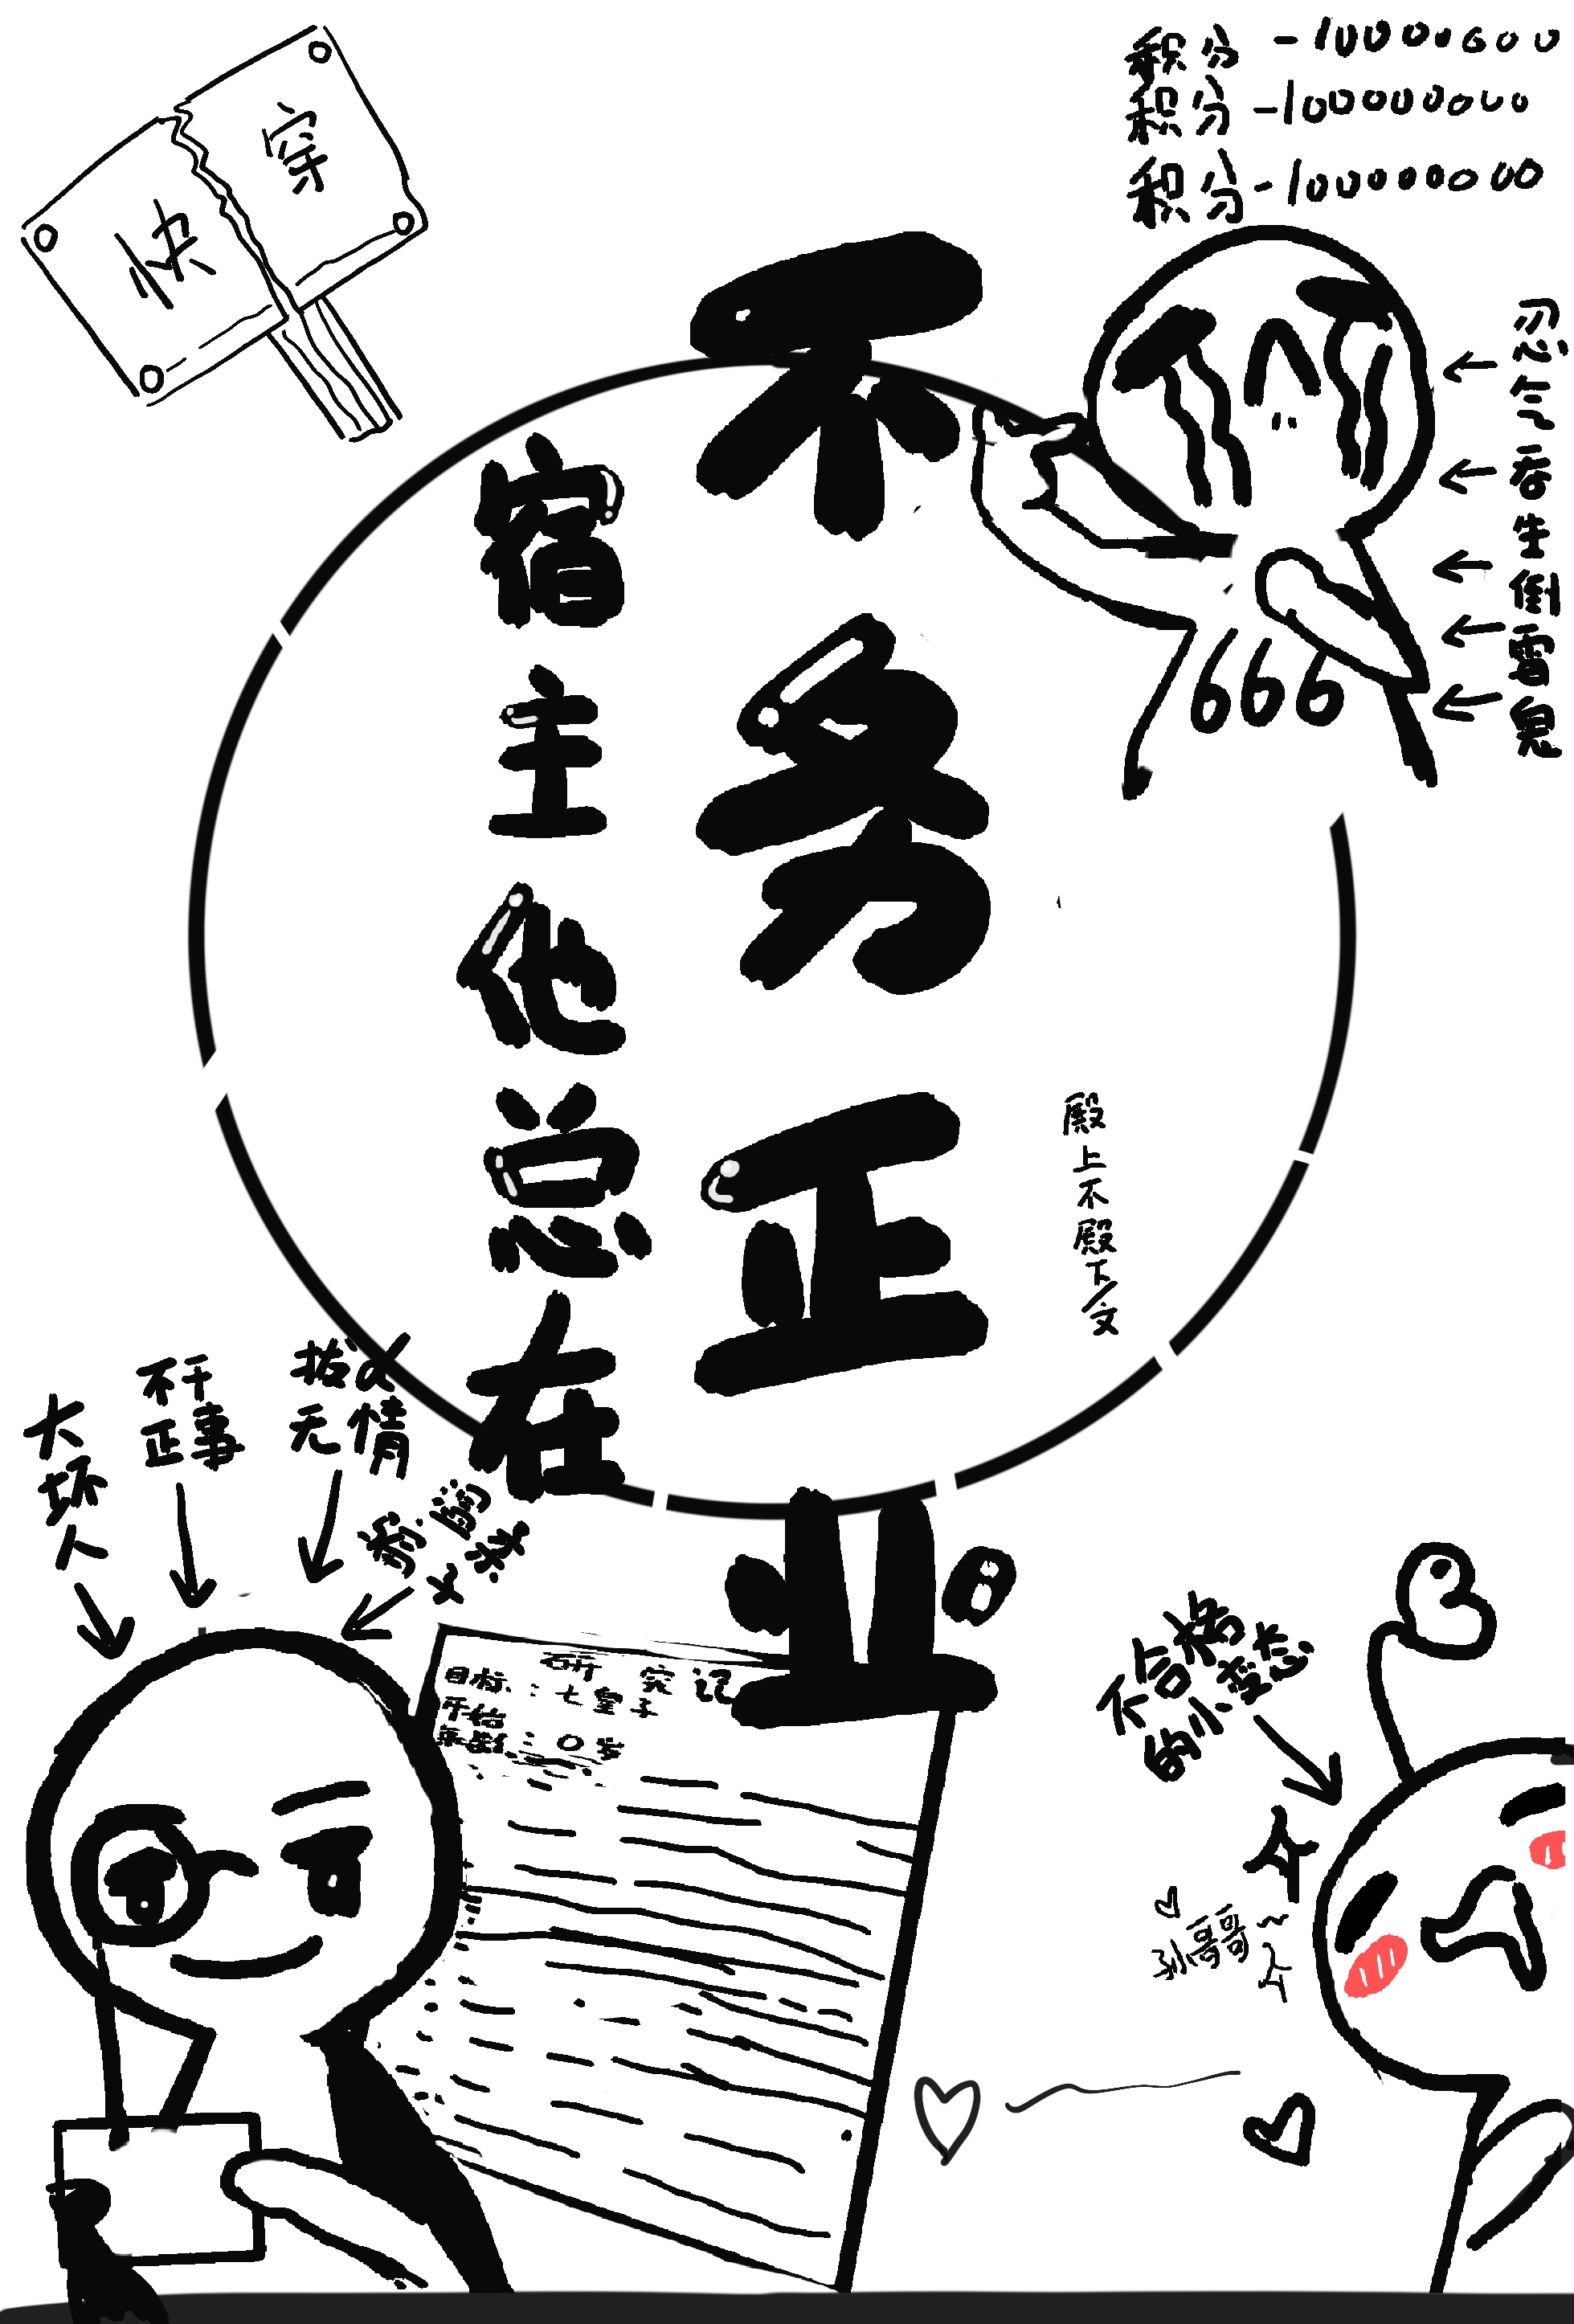 快穿
积分-100000000
积分-1000000000
积分-100000000
忍气吞生倒霉鬼
666
宿主他总在
不务正业
殿上不殿下/文
大坏人
不干
正事
拔X
无情
研究记
目标:七皇子
开始
年龄:0岁
不合格
的小变态
孙哥哥~